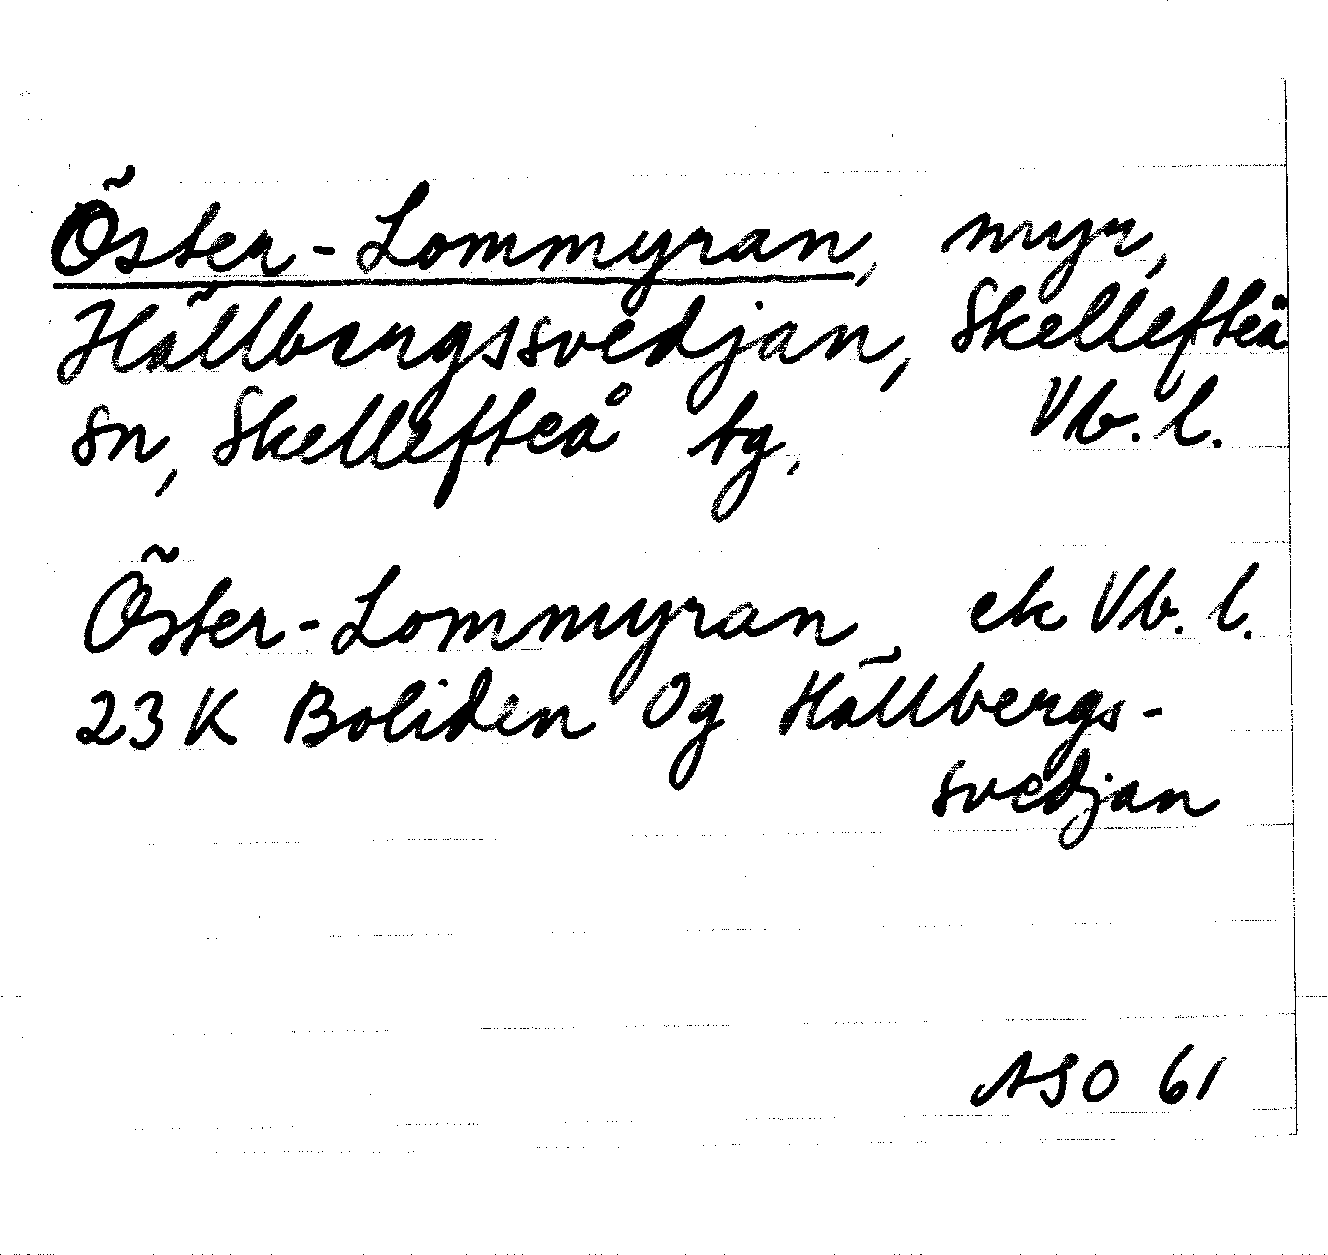 Öster-Lommyran, myr,
Hällbergssvedjan, Skellefteå
sn, Skellefteå tg, Vb. l.
Öster-Lommyran ek Vb. l.
23 K Boliden 0g Hällbergs-
svedjan
ASO 61